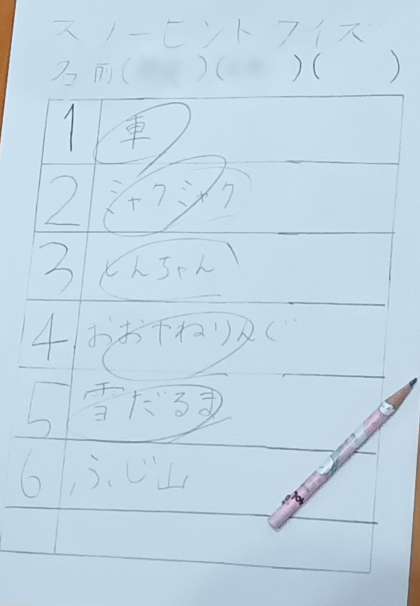 スリーヒントクイズ
名前(　)(　)(　)
1 車
2 シャクシャク
3 とんちゃん
4 おおやねりんぐ
5 雪だるま
6 ふじ山